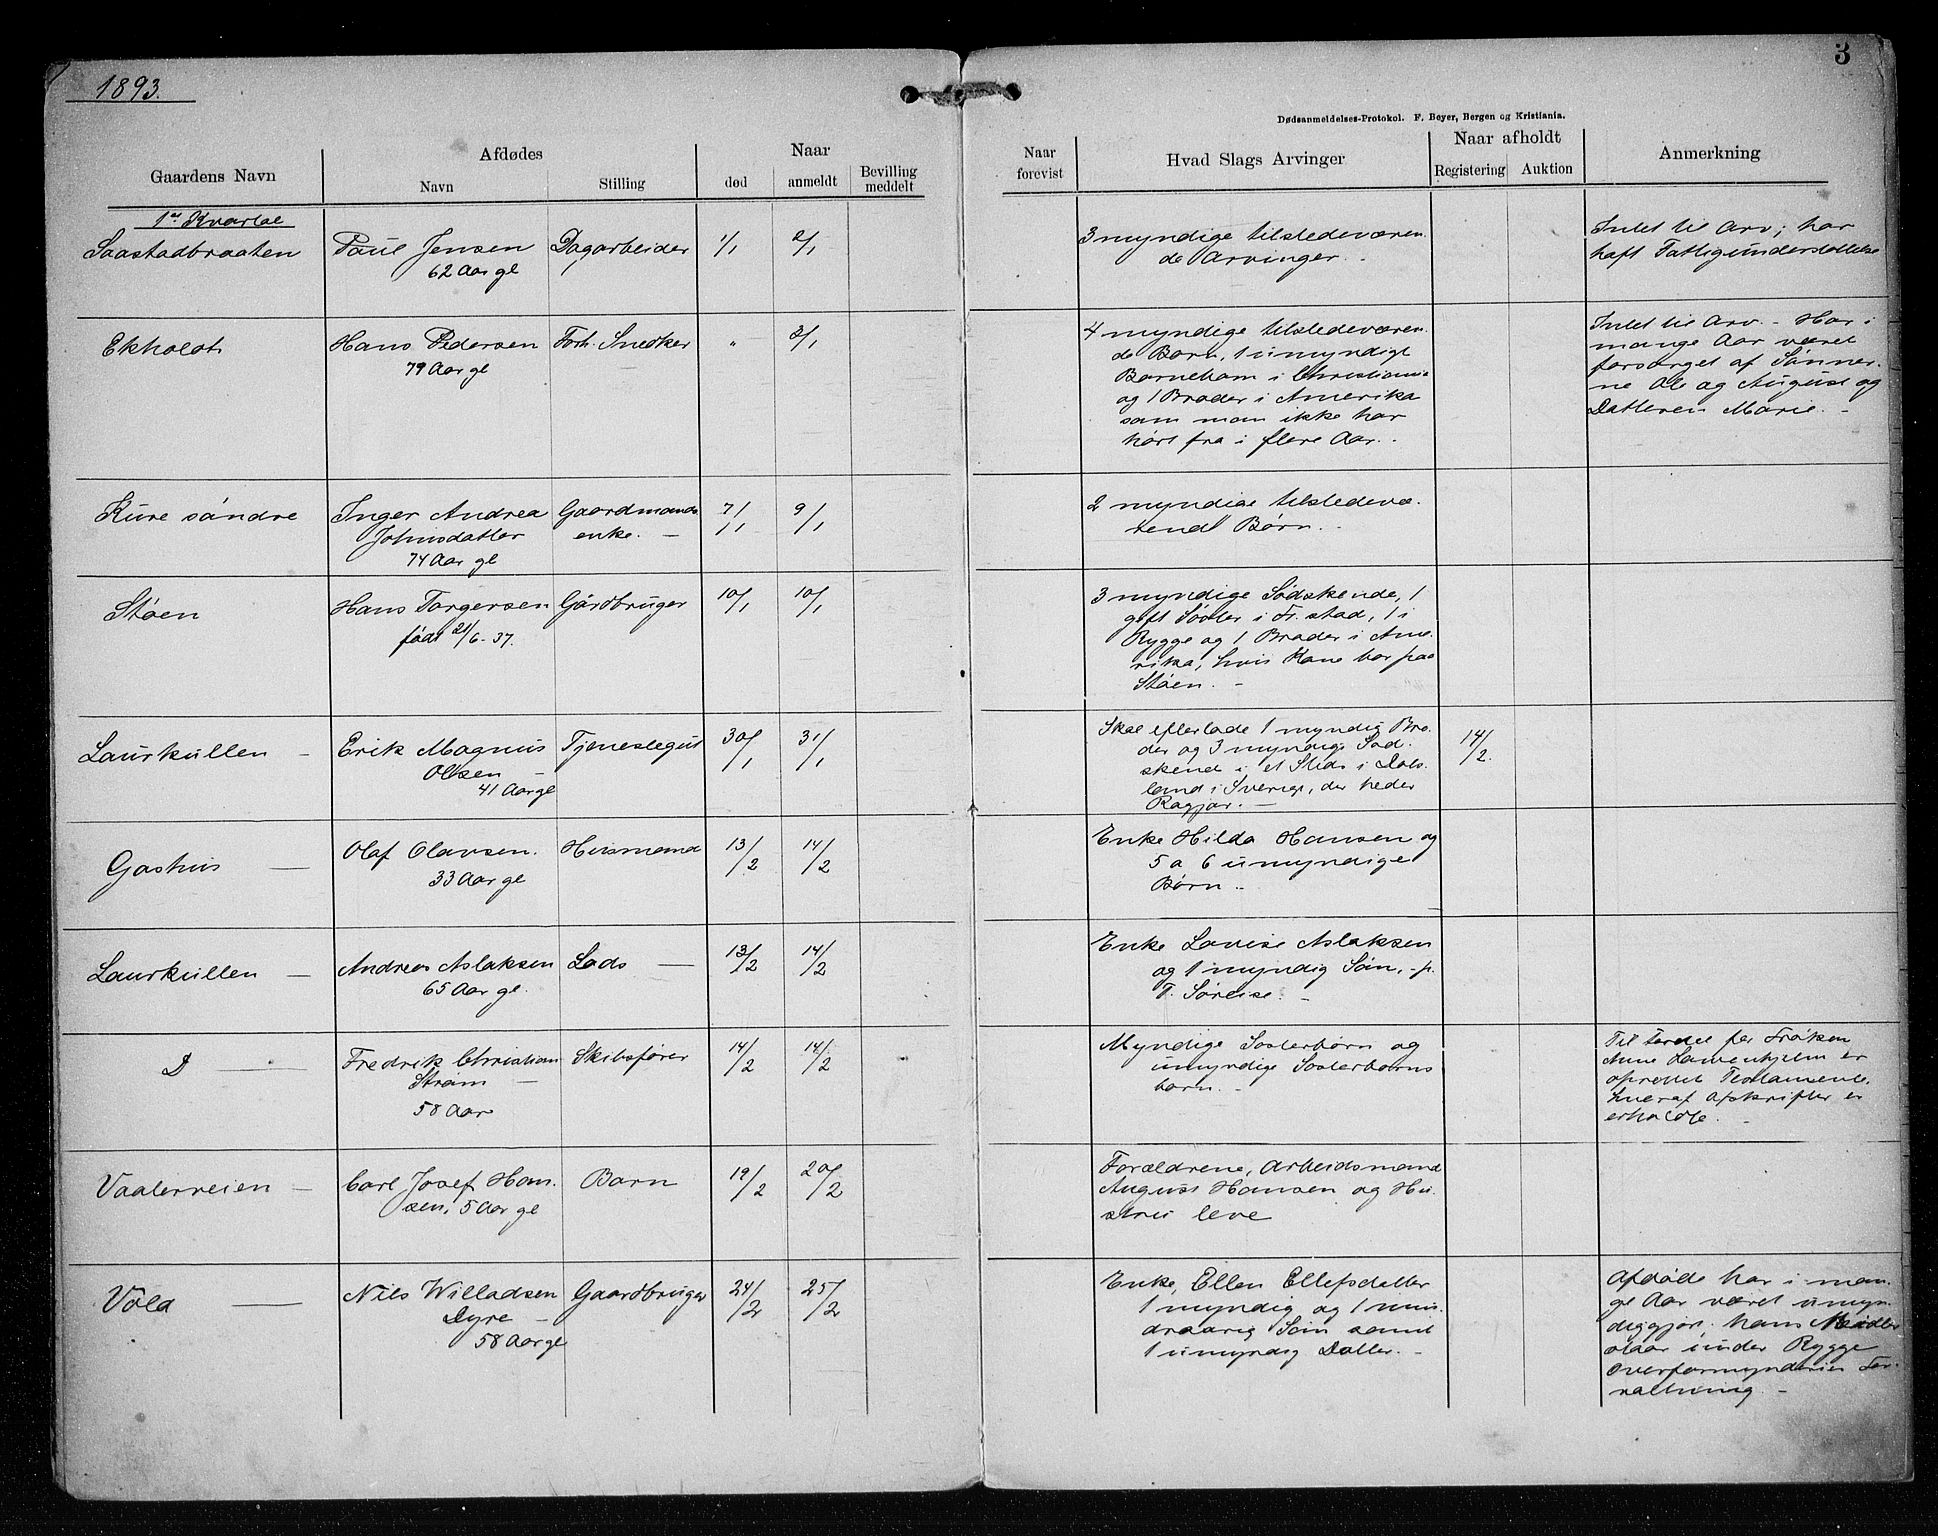 1893.
3
Dødsanmeldelses-Protokol. F. Beyer, Bergen og Kristiania.
Gaardens Navn
Afdødes
Navn
Stilling
Naar
død
anmeldt
Bevilling
meddelt
Naar
forevist
Hvad Slags Arvinger
Naar afholdt
Registering
Auktion
Anmerkning
1ste Kvartal
Saastadbraaten
Paul Jensen
62 Aar gl
Dagarbeider
1/1
2/1
3 myndige tilstedeværen
de Arvinger.
Intet til Arv; har
haft Fattigunderstøttelse
Ekholdt
Hans Pedersen
79 Aar gl
Forh. Snedker
"
2/1
4 myndige tilstedeværen
de Børn, 1 umyndigt
Barnebarn i Christiania
og 1 Broder i Amerika
som man ikke har
hørt fra i flere Aar.
Intet til Arv. - Har i
mange Aar været
forsørget af Sønner-
ne Ole og August og
Datteren Marie. -
Kure søndre
Inger Andrea
Johnsdatter
74 Aar gl
Gaardmands
enke. -
7/1
9/1
2 myndige tilstedevæ-
rende Børn.
Støen
Hans Torgersen
født 21/6-37.
Gårdbruger
10/1
10/1
3 myndige Sødskende, 1
gift Søster i Fr.stad, 1 i
Rygge og 1 Broder i Ame-
rika, hvis Kone bor paa
Støen. -
Laurkullen -
Erik Magnus
Olsen -
41 Aar gl
Tjenestegut
30/1
31/1
Skal efterlade 1 myndig Bro-
der og 3 myndige Sød-
skend i et Sted i Dals-
land i Sverige, der heder
Ragjør. -
14/2.
Gashus -
Olaf Olavsen.
33 Aar gl
Husmand
13/2
14/2
Enke Hilda Hansen og
5 a 6 umyndige
Børn.
Laurkullen -
Andreas Aslaksen
65 Aar gl.
Lods -
13/2
14/2
Enke Lovise Aslaksen
og 1 myndig Søn, - p.
T. Søreise. -
D -
Fredrik Christian
Strøm -
58 Aar
Skibsfører
14/2
14/2
Myndige Søsterbørn og
umyndige Søsterbørns
børn. -
Til fordel for Frøken
Anne Lovenhjelm er
oprettet Testamente,
hvoraf Afskrifter er
erholdte. -
Vaalerveien -
Carl Josef Han-
sen, 5 Aar gl
Barn
19/2
20/2
Forældrene, Arbeidsmand
August Hansen og Hu-
stru leve
Vold -
Nils Willadsen
Dyre -
58 Aar gl
Gaardbruger
24/2
25/2
Enke, Ellen Ellefsdatter
1 myndig og 1 min-
draarig Søn samt
1 umyndig Datter. -
Afdøde har i man-
ge Aar været umyn-
diggjort. hans Midler
staar under Rygge
Overformynderies For-
valtning. -